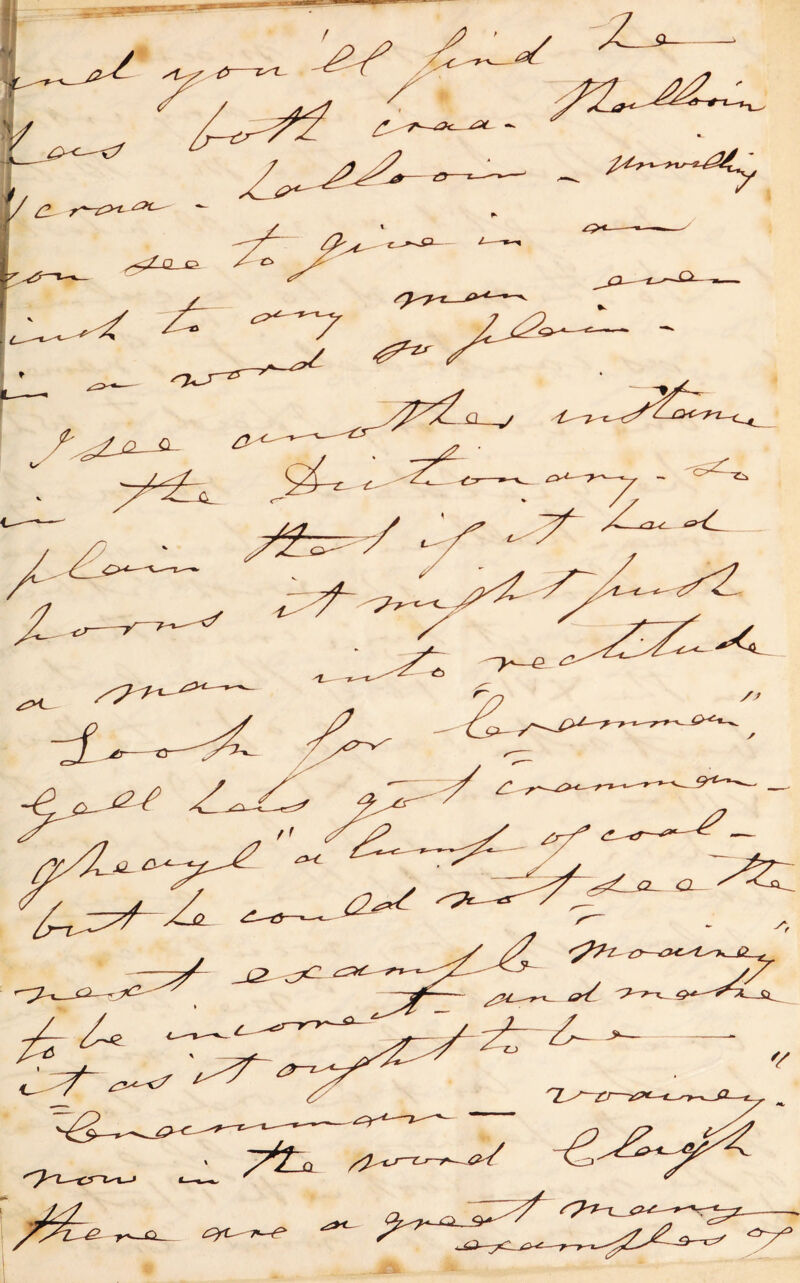 and you'll find he
has both craa-thallooin
craa-hallooin - Unwilling
you see to give in an
inch to any man even
in a word so plain -
I see another instance
in the Dictionary - so
plain that if it had
horns it might push
a man into rectitude
Look for "Crammman",
Gell has got "crammman-
gheayl" a lump of coal -
but he could not see the
next example "moainey"
to be incorrect - and make
it as it ought to be
"Crammman — voainey".
now in the word Clagh
there are a great many
examples of